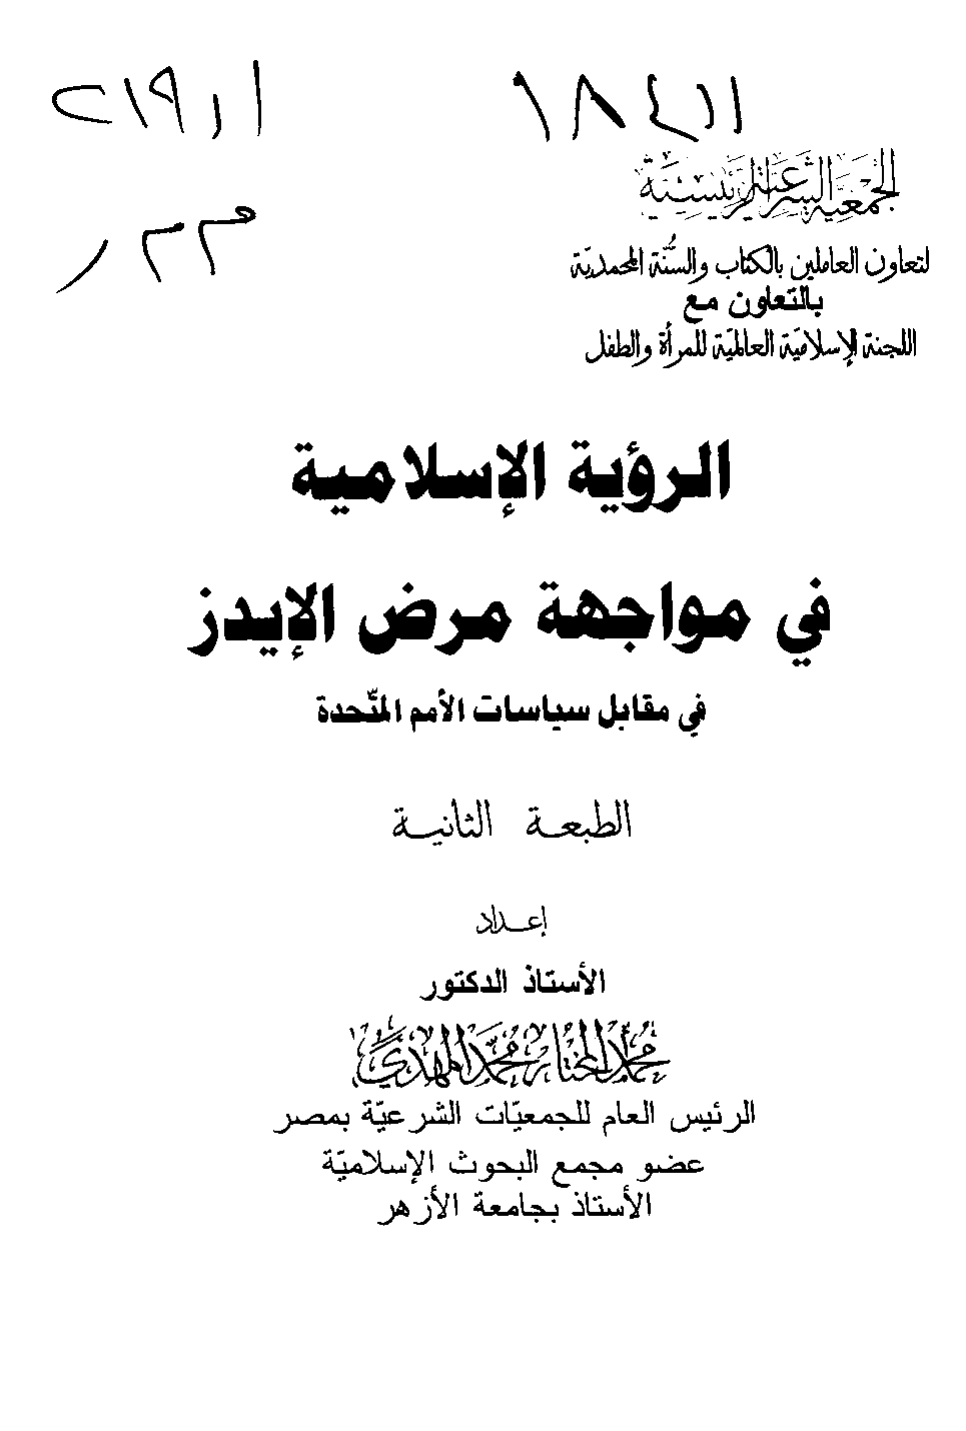 الجمعية الشرعية الرئيسية
لتعاون العاملين بالكتاب والسُّنَّة المحمديَّة
بالتعاون مع
اللجنة الإسلاميَّة العالميَّة للمرأة والطفل
الرؤية الإسلامية
في مواجهة مرض الإيدز
في مقابل سياسات الأمم المتّحدة
الطبعة الثانية
إعداد
الأستاذ الدكتور
محمد المختار محمد المهدي
الرئيس العام للجمعيّات الشرعيّة بمصر
عضو مجمع البحوث الإسلاميّة
الأستاذ بجامعة الأزهر